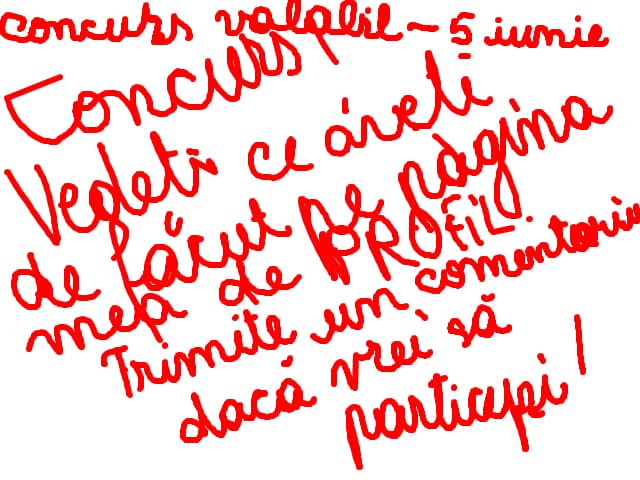 concurs valabil ~ 5 iunie
Concurs
Vedeti ce aveti
de făcut pe pagina
mea de PROFIL.
Trimite un comentariu
dacă vrei să
participi!